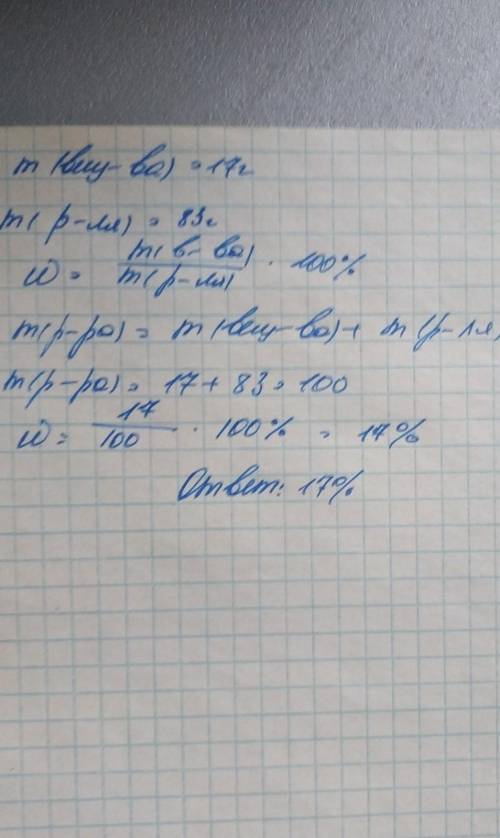 m(вещ-ва) = 17г
m(р-ля) = 83г
w = m(в-ва) / m(р-ля) · 100%
m(р-ра) = m(вещ-ва) + m(р-ля)
m(р-ра) = 17 + 83 = 100
w = 17 / 100 · 100% = 17%
Ответ: 17%